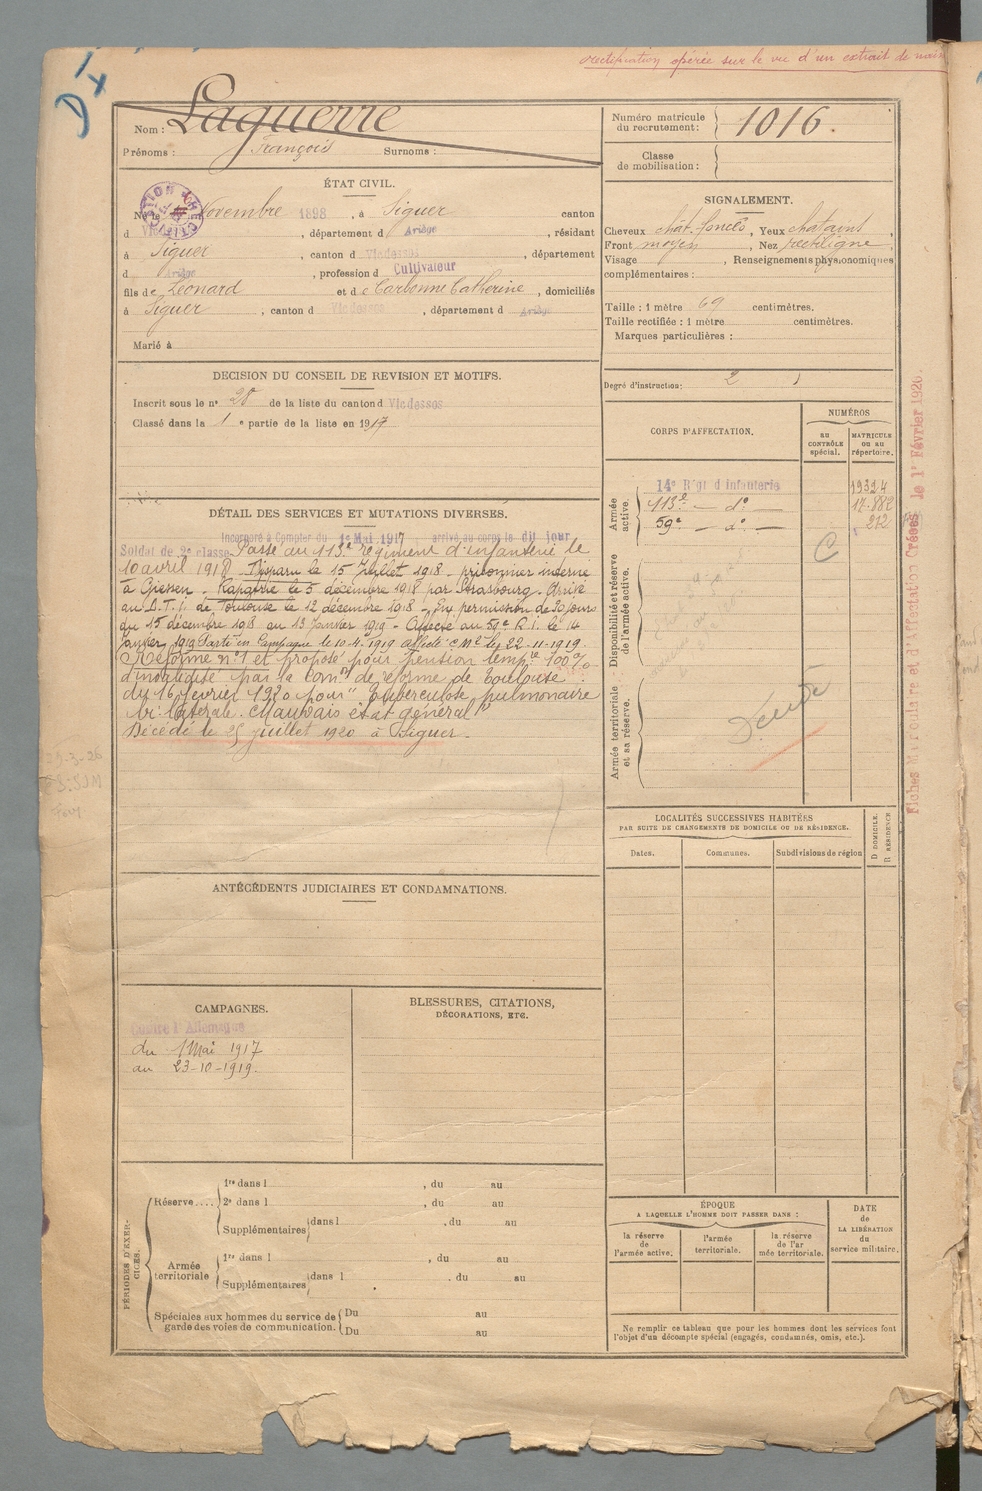 rectification opérée sur le vu d'un extrait de nais
D
Nom : Laguerre
Prénoms : François Surnoms :
Numéro matricule du recrutement : 1016.
Classe de mobilisation :
ÉTAT CIVIL.
Né le Novembre 1898, à Siguer canton
d Vic, département d Ariège, résidant
à Siguer, canton d Vicdessos, département
d Ariège, profession d Cultivateur
fils de Léonard et de Carbonne Catherine, domiciliés
à Siguer, canton d Vicdessos, département d Ariège
Marié à
SIGNALEMENT.
Cheveux chat. foncés, Yeux chatains,
Front moyen, Nez rectiligne
Visage , Renseignements physionomiques
complémentaires :
Taille : 1 mètre 69 centimètres.
Taille rectifiée : 1 mètre centimètres.
Marques particulières :
Degré d'instruction : 2
DECISION DU CONSEIL DE REVISION ET MOTIFS.
Inscrit sous le n° 28 de la liste du canton d Vicdessos
Classé dans la 1 e partie de la liste en 1917
DÉTAIL DES SERVICES ET MUTATIONS DIVERSES.
Incorporé à Compter du 1er Mai 1917 arrivé au corps le dit jour
Soldat de 2e classe Passé au 113e régiment d'infanterie le
10 avril 1918. Disparu le 15 Juillet 1918 - prisonnier interné
à Giessen. Rapatrié le 5 décembre 1918 par Strasbourg. Arrivé
au D.T.I. de Toulouse le 12 décembre 1918 - En permission de 30 jours
du 15 décembre 1918 au 13 Janvier 1919 - Affecté au 59e R.I. le 14
Janvier 1919 Parti en Campagne le 10.4.1919 affecté le 22-11-1919.
Réformé n°1 et proposé pour pension tempre 100%
d'invalidité par la Comon de réforme de Toulouse
du 16 février 1920 pour "Tuberculose pulmonaire
bi-latérale. Mauvais état général"
Décédé le 25 juillet 1920 à Siguer.
CORPS D'AFFECTATION.
NUMÉROS
AU CONTRÔLE spécial.
MATRICULE ou au répertoire.
Armée active.
14e Régt d'infanterie 19324
113e - d° - 17.882
59e - d° - 212
C
Disponibilité et réserve de l'armée active.
Armée territoriale et sa réserve.
Fiches Matriculaire et d'Affectation Créées le 1er Février 1926.
LOCALITÉS SUCCESSIVES HABITÉES
PAR SUITE DE CHANGEMENTS DE DOMICILE OU DE RÉSIDENCE.
Dates. Communes. Subdivisions de région
D DOMICILE.
R RÉSIDENCE
ANTÉCÉDENTS JUDICIAIRES ET CONDAMNATIONS.
CAMPAGNES.
Contre l'Allemagne
du 1 Mai 1917
au 23-10-1919.
BLESSURES, CITATIONS,
DÉCORATIONS, ETC.
PÉRIODES D'EXERCICES.
Réserve....
1re dans l , du au
2e dans l , du au
Supplémentaires dans l , du au
Armée territoriale
1re dans l , du au
Supplémentaires dans l , du au
Spéciales aux hommes du service de garde des voies de communication.
Du au
Du au
ÉPOQUE
A LAQUELLE L'HOMME DOIT PASSER DANS :
la réserve de l'armée active.
l'armée territoriale.
la réserve de l'armée territoriale.
DATE de LA LIBÉRATION du service militaire.
Ne remplir ce tableau que pour les hommes dont les services font
l'objet d'un décompte spécial (engagés, condamnés, omis, etc.).